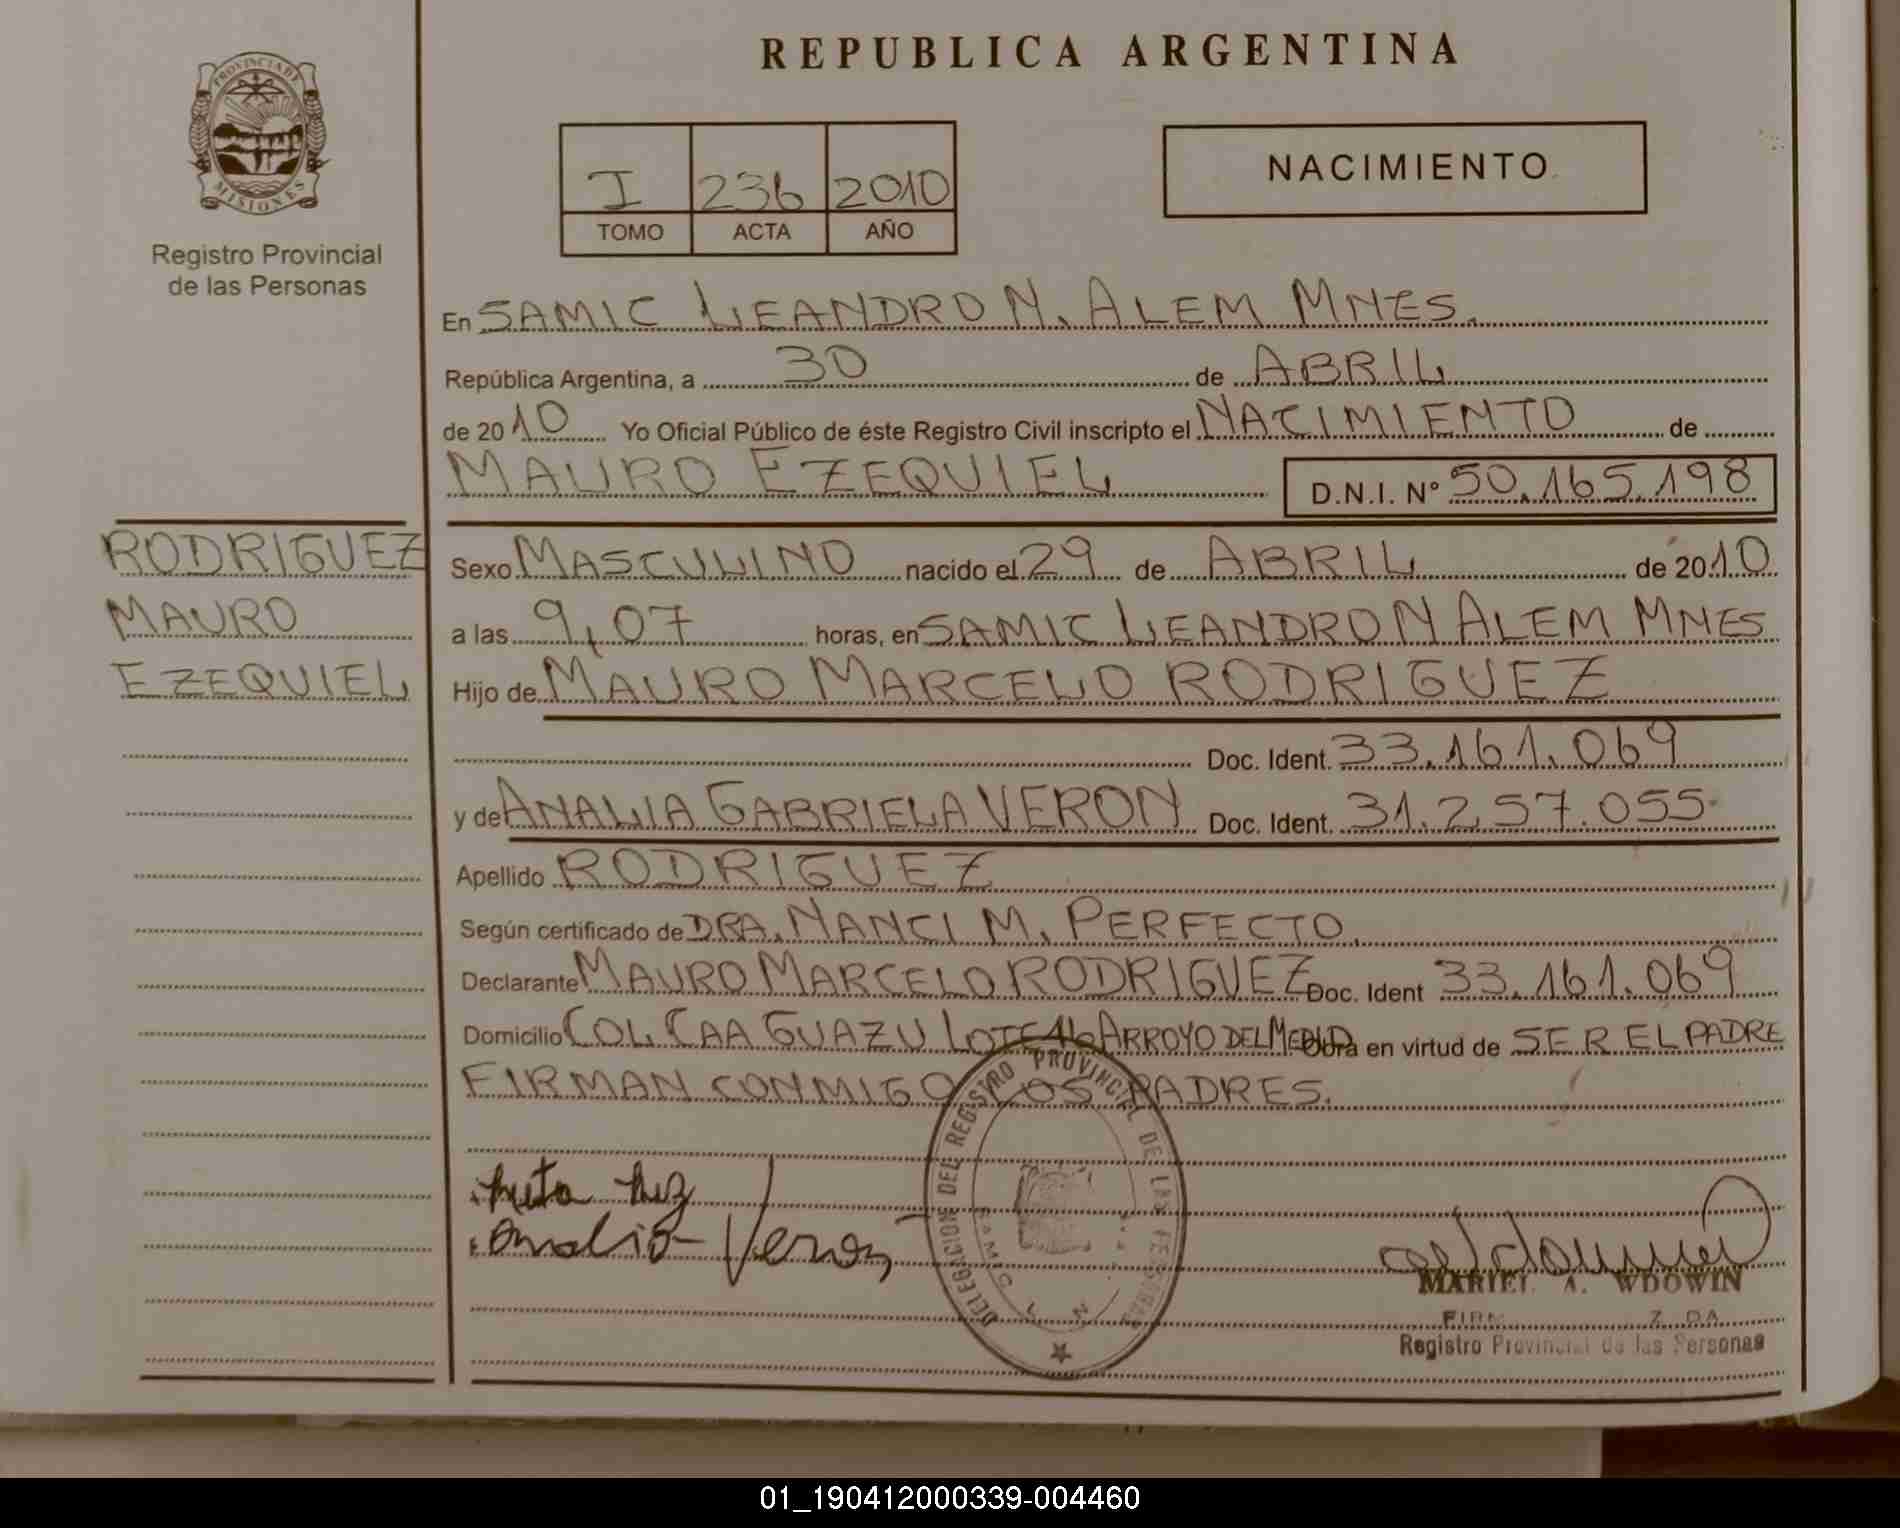 REPUBLICA ARGENTINA
PROVINCIA DE MISIONES
Registro Provincial
de las Personas
I 236 2010
TOMO ACTA AÑO
NACIMIENTO
En SAMIC LEANDRO N. ALEM MNES.
República Argentina, a 30 de ABRIL
de 2010 Yo Oficial Público de éste Registro Civil inscripto el NACIMIENTO de
MAURO EZEQUIEL D.N.I. Nº 50.165.198
RODRIGUEZ
MAURO
EZEQUIEL
Sexo MASCULINO nacido el 29 de ABRIL de 2010
a las 9,07 horas, en SAMIC LEANDRO N ALEM MNES
Hijo de MAURO MARCELO RODRIGUEZ
Doc. Ident. 33.161.069
y de ANALIA GABRIELA VERON Doc. Ident. 31.257.055
Apellido RODRIGUEZ
Según certificado de DRA. NANCI M. PERFECTO
Declarante MAURO MARCELO RODRIGUEZ Doc. Ident 33.161.069
Domicilio COL CAA GUAZU LOTE 46 ARROYO DEL MEDIO Obra en virtud de SER EL PADRE
FIRMAN CONMIGO LOS PADRES.
DELEGACION DEL REGISTRO PROVINCIAL DE LAS PERSONAS
SAMIC L. N.
Veron
MARIEL A. WDOWIN
Registro Provincial de las Personas
01_190412000339-004460